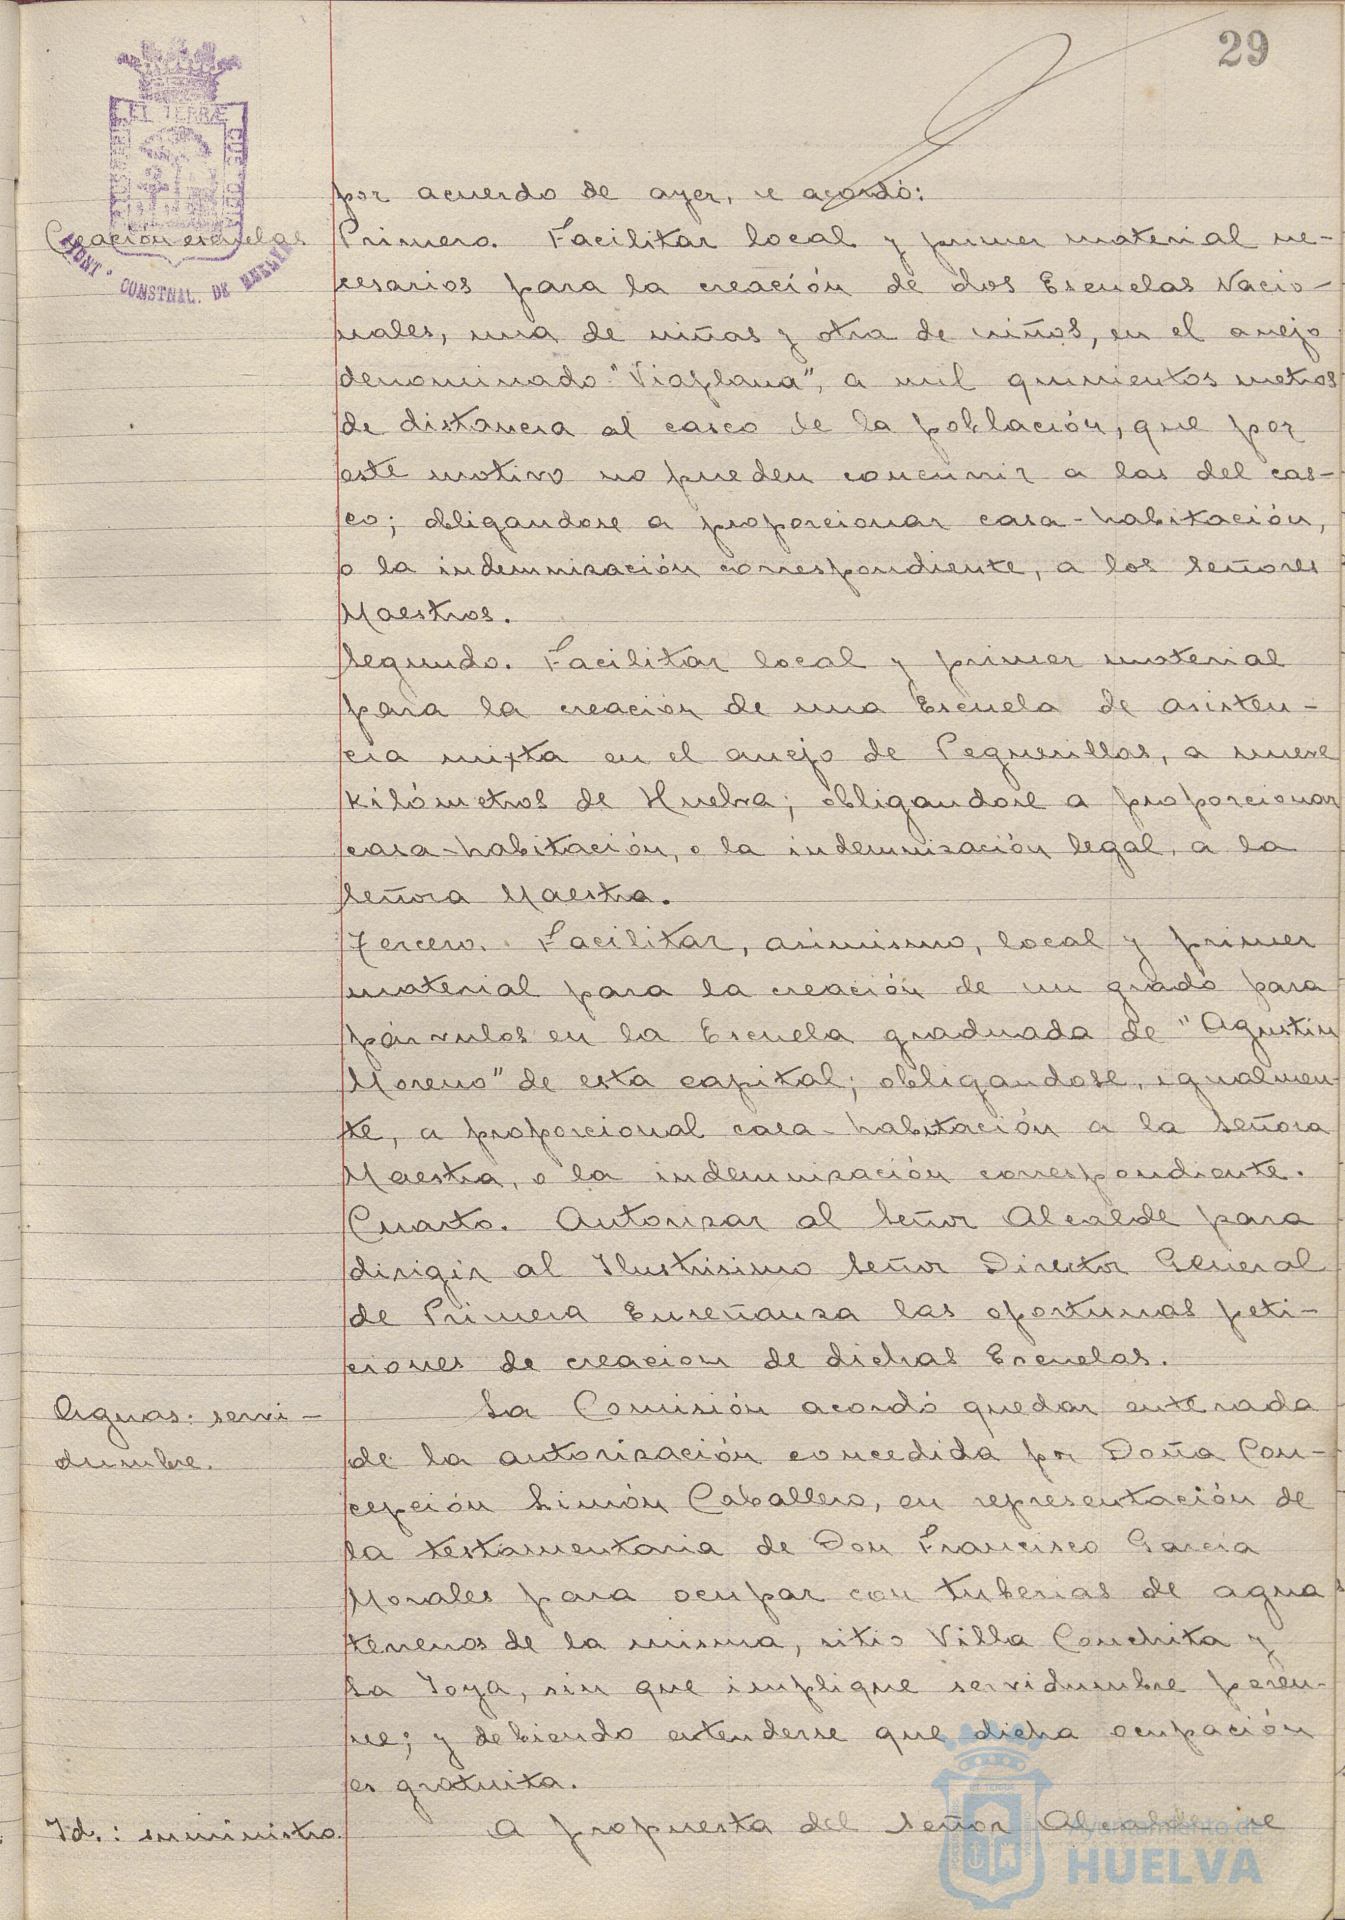 29
por acuerdo de ayer, se acordó:
Creación escuelas
Primero. Facilitar local y primer material ne-
cesarios para la creación de dos Escuelas Nacio-
nales, una de niñas y otra de niños, en el anejo
denominado "Viaplana", a mil quinientos metros
de distancia al casco de la población, que por
este motivo no pueden concurrir a las del cas-
co; obligandose a proporcionar casa-habitación,
o la indemnización correspondiente, a los Señores
Maestros.
Segundo. Facilitar local y primer material
para la creación de una Escuela de asisten-
cia mixta en el anejo de Peguerillas, a nueve
kilómetros de Huelva; obligandose a proporcionar
casa-habitación, o la indemnización legal, a la
Señora Maestra.
Tercero. Facilitar, asimismo, local y primer
material para la creación de un grado para
párvulos en la Escuela graduada de "Agustin
Moreno" de esta capital; obligandose, igualmen-
te, a proporcional casa-habitación a la Señora
Maestra, o la indemnización correspondiente.
Cuarto. Autorizar al Señor Alcalde para
dirigir al Ilustrisimo Señor Director General
de Primera Enseñanza las oportunas peti-
ciones de creación de dichas Escuelas.
Aguas: servi-
dumbre.
La Comisión acordó quedar enterada
de la autorización concedida por Doña Con-
cepción Limón Caballero, en representación de
la testamentaria de Don Francisco García
Morales para ocupar con tuberias de aguas
terrenos de la misma, sitio Villa Conchita y
La Joya, sin que implique servidumbre peren-
ne; y debiendo entenderse que dicha ocupación
es gratuita.
Id.: suministro.
A propuesta del Señor Alcalde se
EL TERRÆ
AYUNT° CONSTNAL. DE HUELVA
Ayuntamiento de
HUELVA